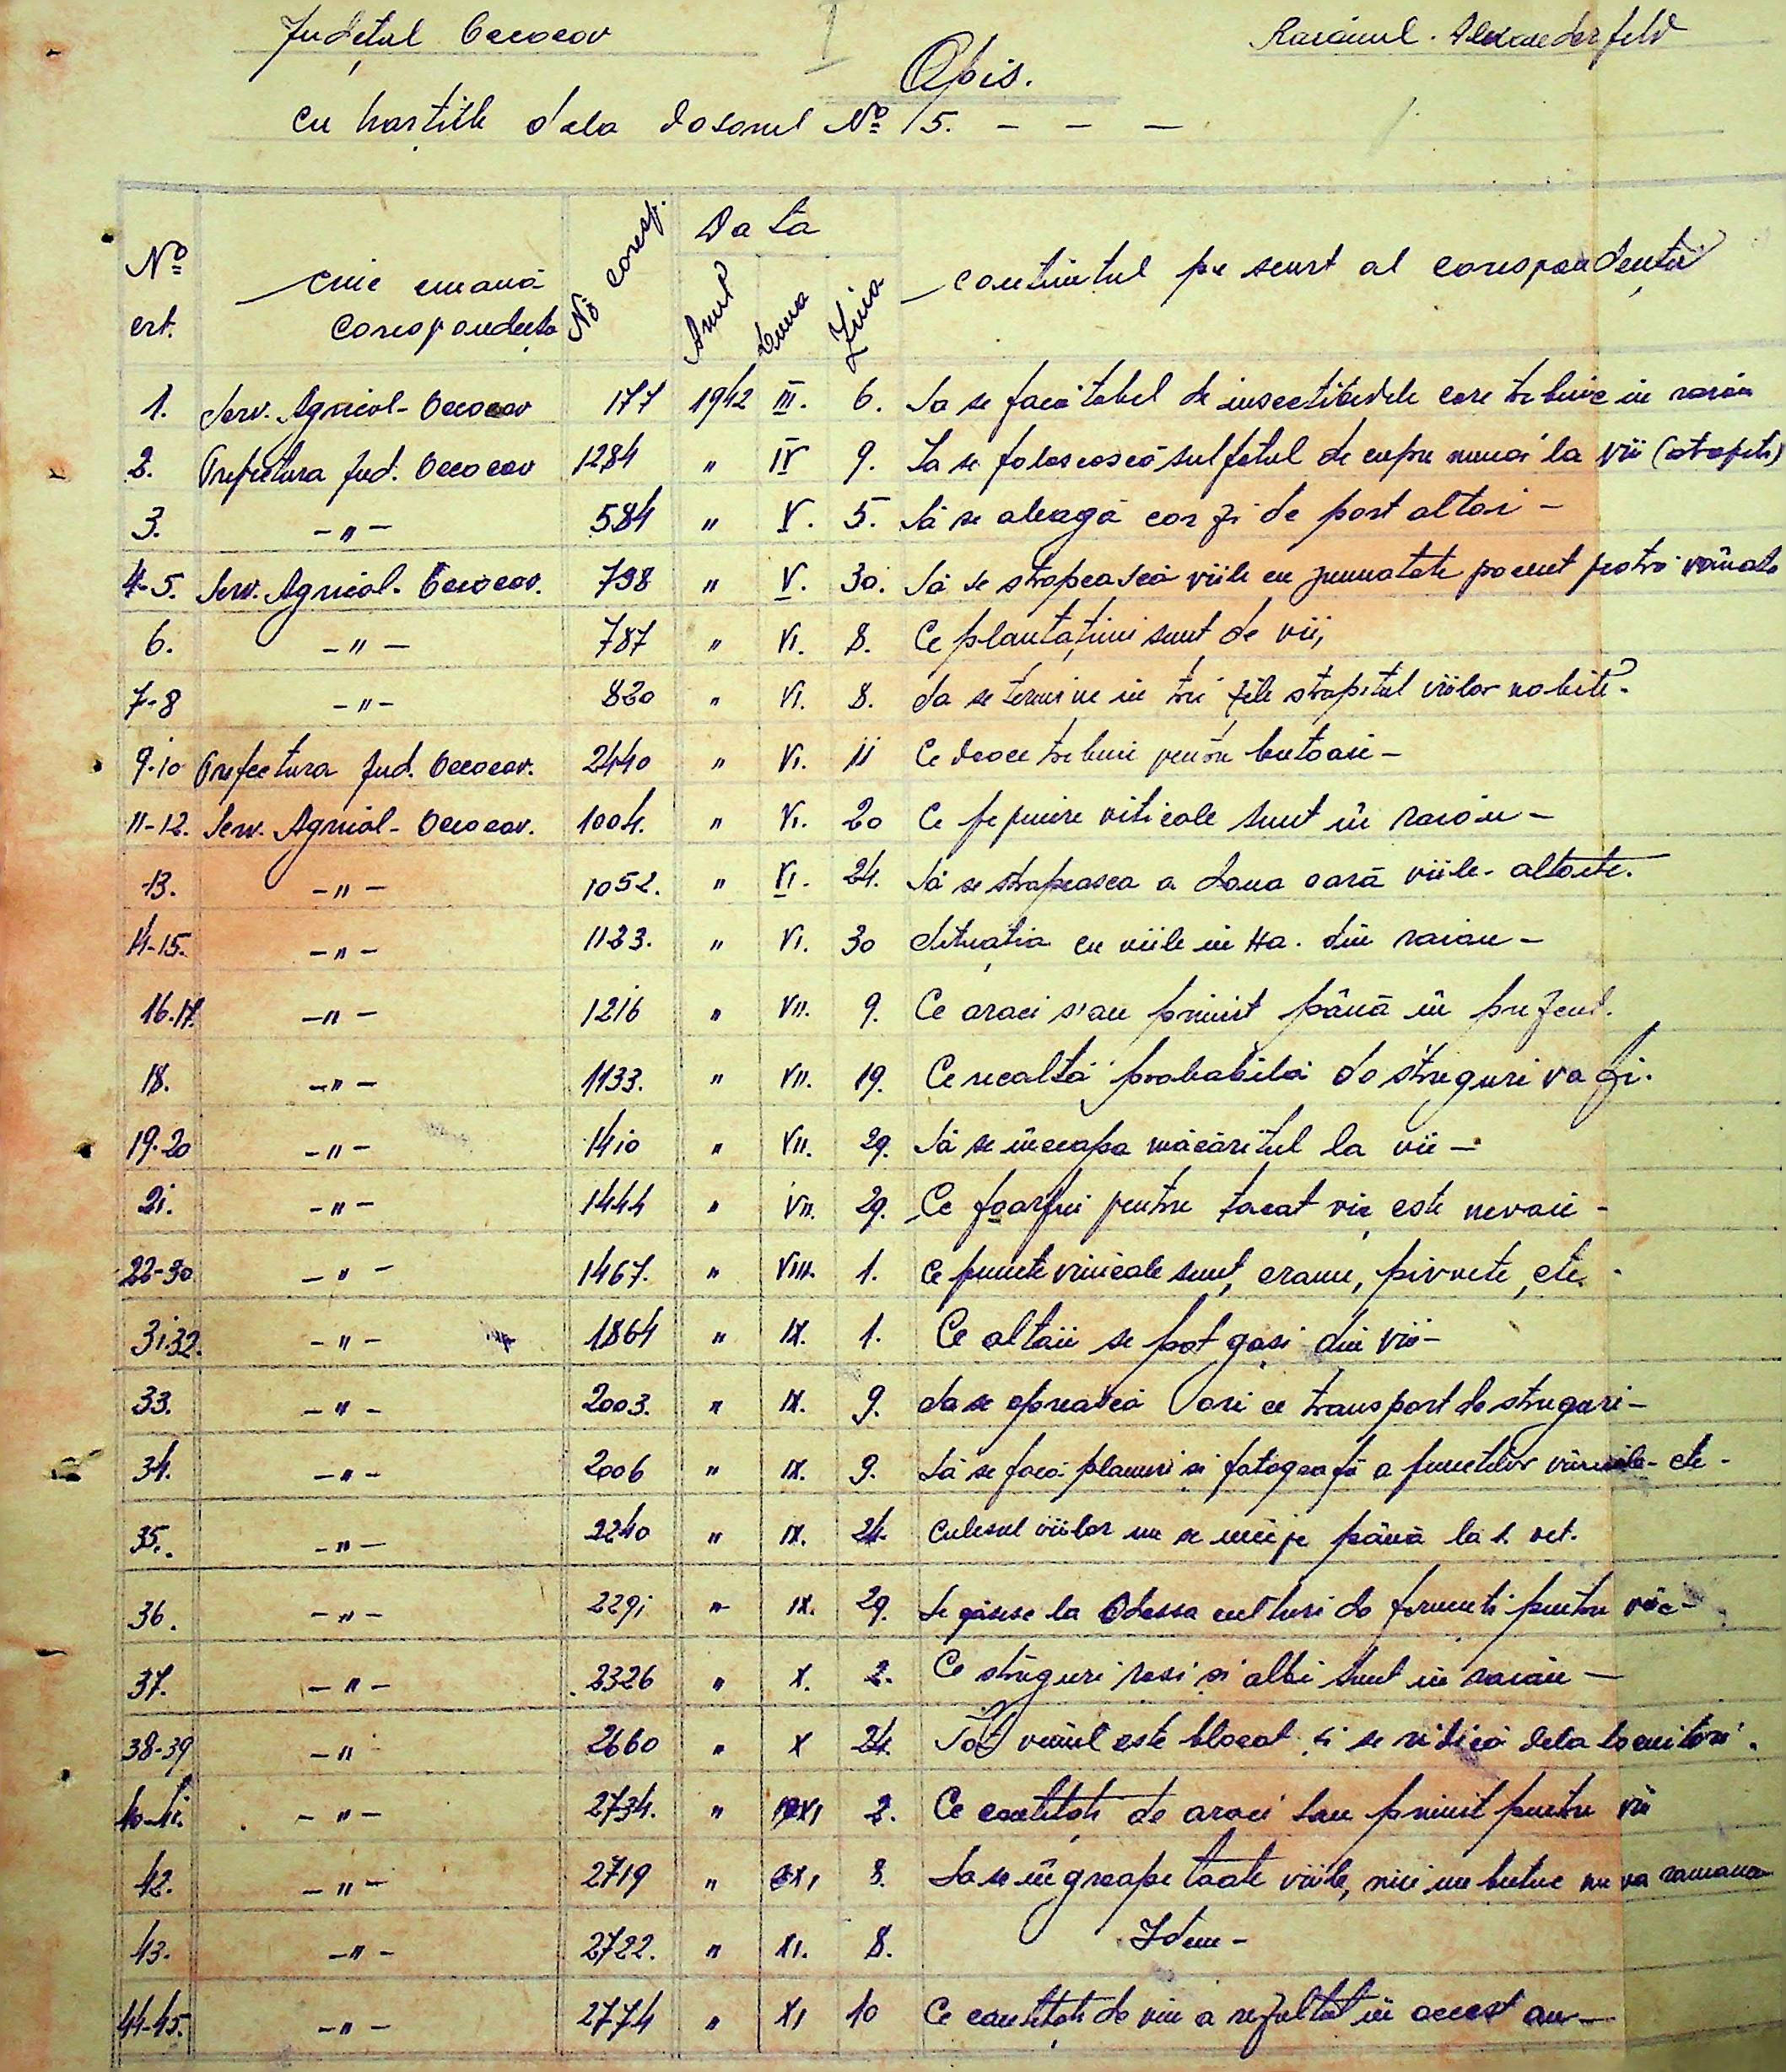 Județul Oceacov
Raionul Alexanderfeld
Opis.
cu hartiile dela dosarul Nº 15. - - -
Nº crt. cine emană corespondența Nº coresp. Data Anul Luna Ziua conținutul pe scurt al corespondenței
1. Serv. Agricol - Oceacov 177 1942 III. 6. Sa se facă tabel de insecticidele care trebuie in raion
2. Prefectura Jud. Oceacov 1284 " IV 9. Sa se folosească sulfatul de cupru numai la vii (stropit)
3. -"- 584 " V. 5. Să se aleagă corzi de port altoi -
4-5. Serv. Agricol - Oceacov. 798 " V. 30. Să se stropească viile cu jumatate pocent piatră vânată
6. -"- 787 " VI. 8. Ce plantațiuni sunt de vii,
7-8 -"- 820 " VI. 8. Sa se termine in trei zile stropitul viilor nobile.
9-10 Prefectura Jud. Oceacov. 2440 " VI. 11 Ce doage trebuie pentru butoaie -
11-12. Serv. Agricol - Oceacov. 1004. " VI. 20 Ce pepiniere viticole sunt în raion -
13. -"- 1052. " VI. 24. Să se stropeasca a doua oară viile - altoite.
14-15. -"- 1123. " VI. 30 Situația cu viile in Ha. din raion -
16.17. -"- 1216 " VII. 9. Ce araci s'au primit până în prezent.
18. -"- 1133. " VII. 19. Ce recoltă probabilă de struguri va fi.
19-20 -"- 1410 " VII. 29. Să se înceapa la vii -
21. -"- 1444 " VII. 29. Ce pentru vie este nevoie -
22-30 -"- 1467. " VIII. 1. Ce puncte vinicole sunt, crame, pivnete, etc. -
31.32. -"- 1864 " IX. 1. Ce altoii se pot găsi din vii -
33. -"- 2003. " IX. 9. Sa se oprească ori ce transport de struguri -
34. -"- 2006 " IX. 9. Să se facă planuri și fotografă a punctelor vinicole - etc -
35. -"- 2240 " IX. 24. Culesul viilor nu se începe până la 1. oct.
36. -"- 2291 " IX. 29. Se găsesc la Odessa culturi de fermenti pentru vin -
37. -"- 2326 " X. 2. Ce struguri rosi și albi sunt in raion -
38-39 -"- 2660 " X 24. Tot vinul este blocat și se ridică dela locuitori.
40-41. -"- 2734. " XI 2. Ce cantitati de araci sau primit pentru vii
42. -"- 2719 " XI, 8. Sa se îngroape toate viile, nici un butuc nu va ramane
43. -"- 2722. " XI. 8. Idem -
44-45. -"- 2774 " XI 10 Ce cantitati de vin a rezultat în acest an -